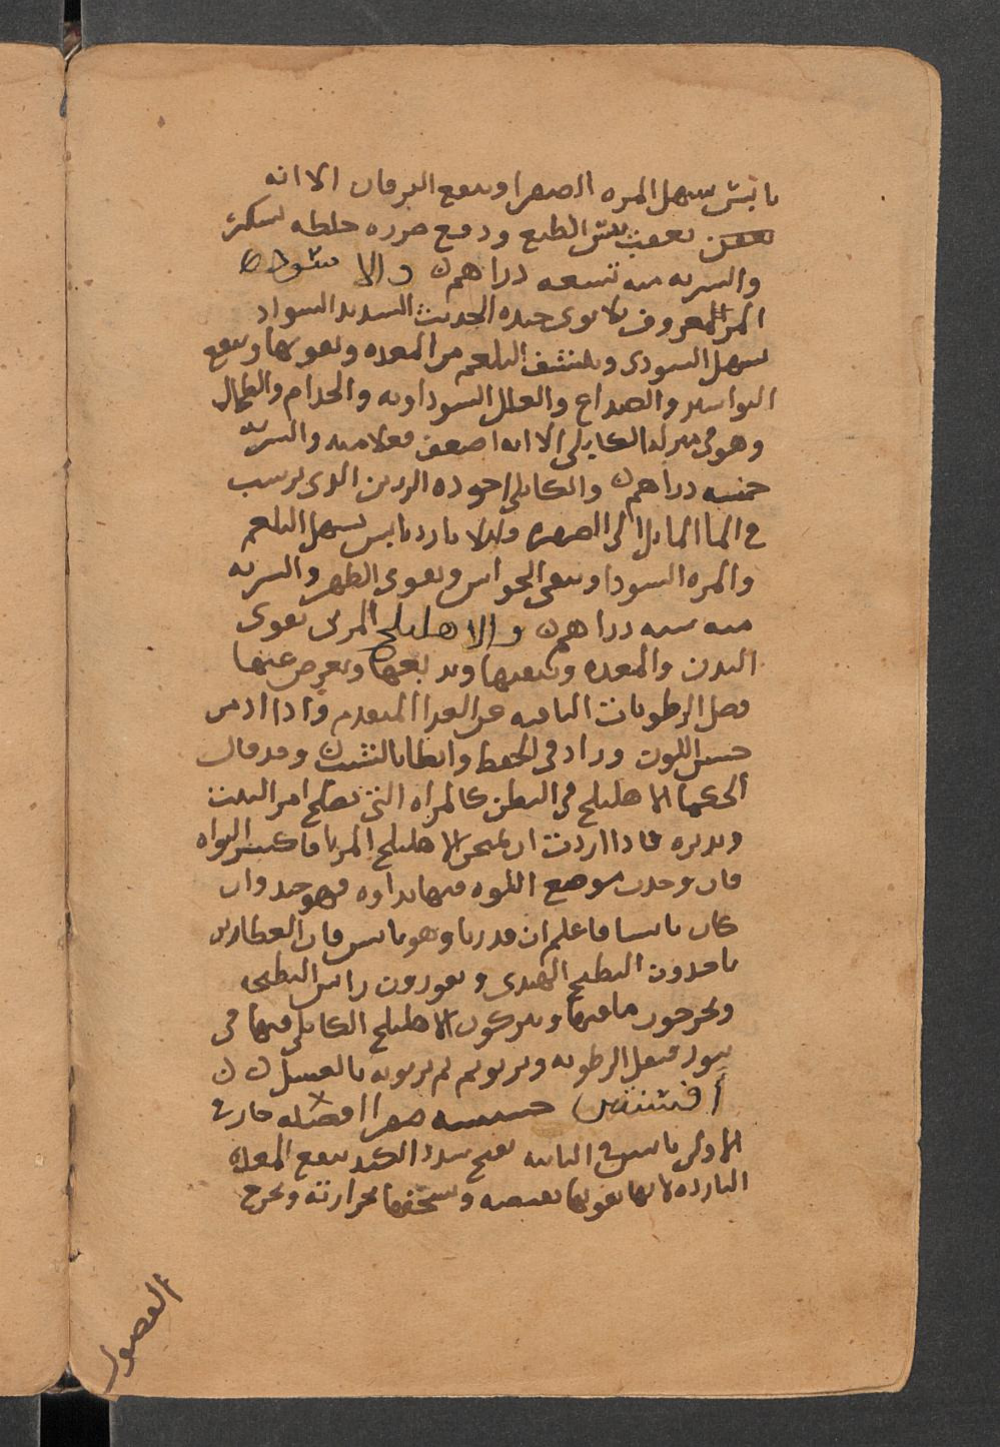 يابس يسهل المره الصفرا وينفع اليرقان الا انه
يعقب يبس الطبع ودفع ضرره خلطه بسكر
والشربه منه تسعه دراهم والاسود
المر المعروف جيده الحديث الشديد السواد
يسهل السودى وينشف البلغم من المعده ويقويها وينفع
البواسير والصداع والعلل السوداويه والجدام والطحال
وهو فى منزله الكابلى الا انه اضعف فعلا منه والشربه
خمسه دراهم والكابلى اجوده الرزين الدى يرسب
فى الما المايل الى الصفره وهو بارد يابس يسهل البلغم
والمره السودا وينقى الحواس ويقوى الظهر والشربه
منه سته دراهم والاهليلج المربى يقوى
البدن والمعده وينقيها ويدبغها ويعرض عنها
فضل الرطوبات الباقيه عن الغدا المتقدم وادا ادمن
حسن اللون وزاد فى الحفظ وابطا بالشيب وقد قال
الحكما الاهليلج فى البطن كالمراه التى تصلح امر البيت
وتدبره فادا اردت ان تمتحن الاهليلج المربا فاكسر النواه
فان وجدت موضع اللوه فيها نداوه فهو جيد وان
كان يابسا فاعلم ان قد ربا وهو يابس فان العطارين
ياخدون البطيخ الهندى ويقورون راس البطيخه
ويخرجون ما فيها ويتركون الاهليلج الكابلى فيها فى
فيقبل الرطوبه ويربو ثم يربونه بالعسل
افسنتين حشيشه صفرا افضله حار فى
الاولى يابس فى الثانيه يفتح سدد الكبد ينفع المعده
البارده لانها يقويها بقبضه ويسخنها بحرارته ويخرج